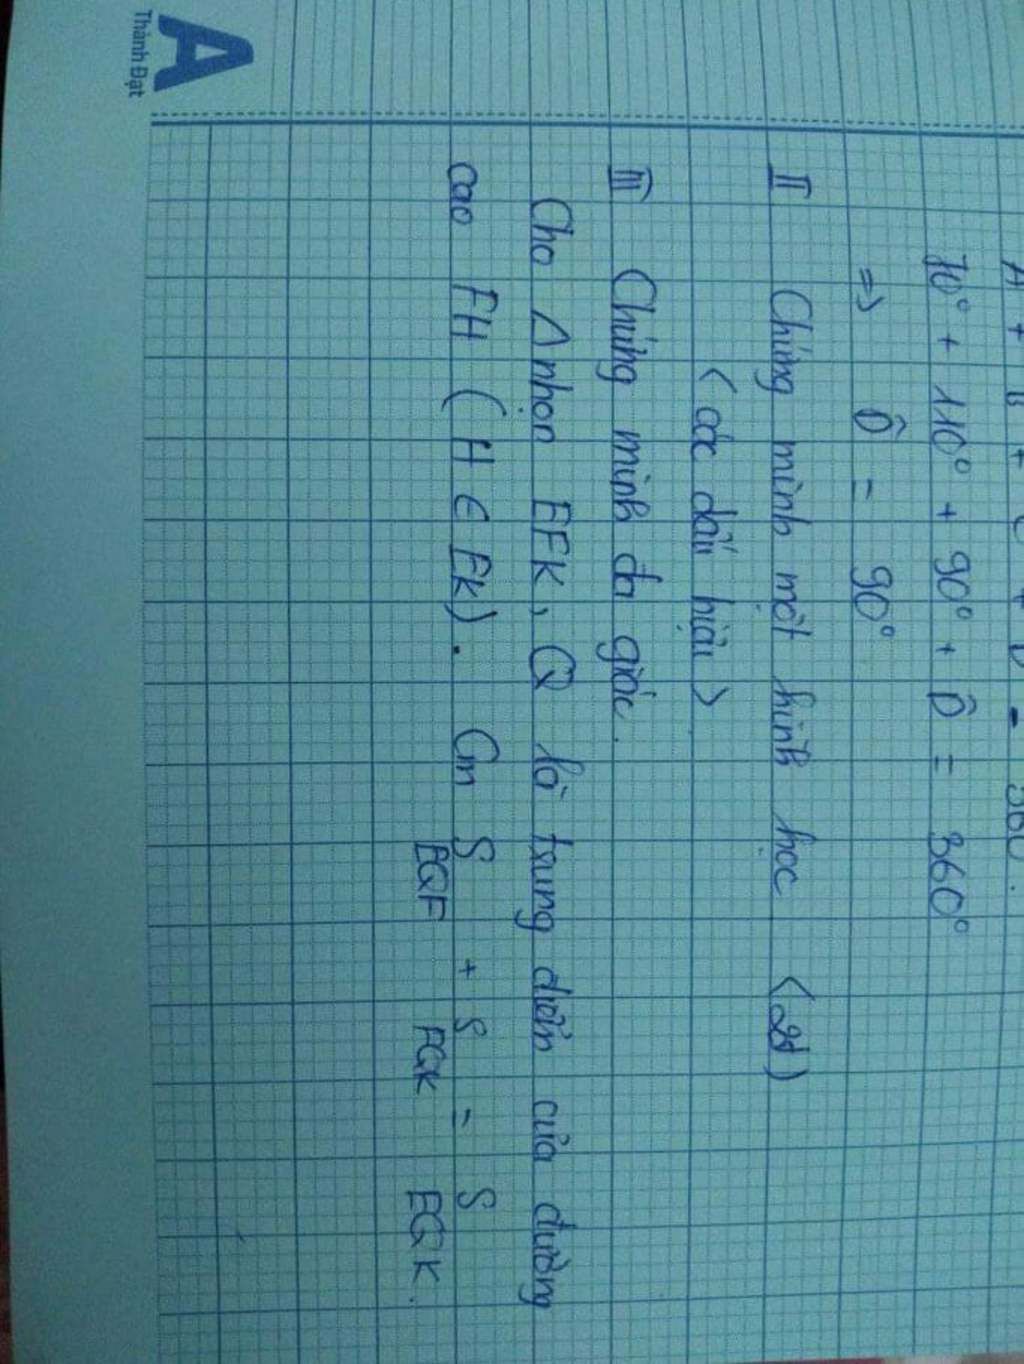 A + B + C + D = 360°.
70° + 110° + 90° + D̂ = 360°
=> D̂ = 90°
II Chứng minh một hình học (2đ)
(các dấu hiệu)
III Chứng minh đa giác.
Cho Δ nhọn EFK, Q là trung điểm của đường
cao FH (H ∈ EK). Cm S EQF + S FQK = S EQK.
A
Thành Đạt